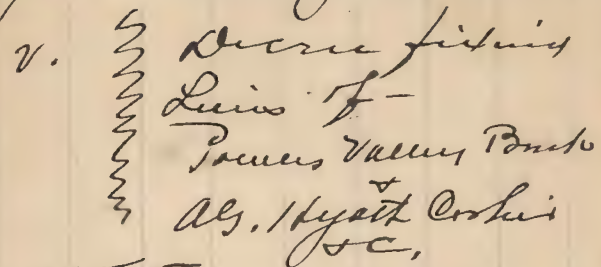 v. Decree fixing
Liens of
Powells Valley Bank
&
Alg. Hyatt Cashier
&C.